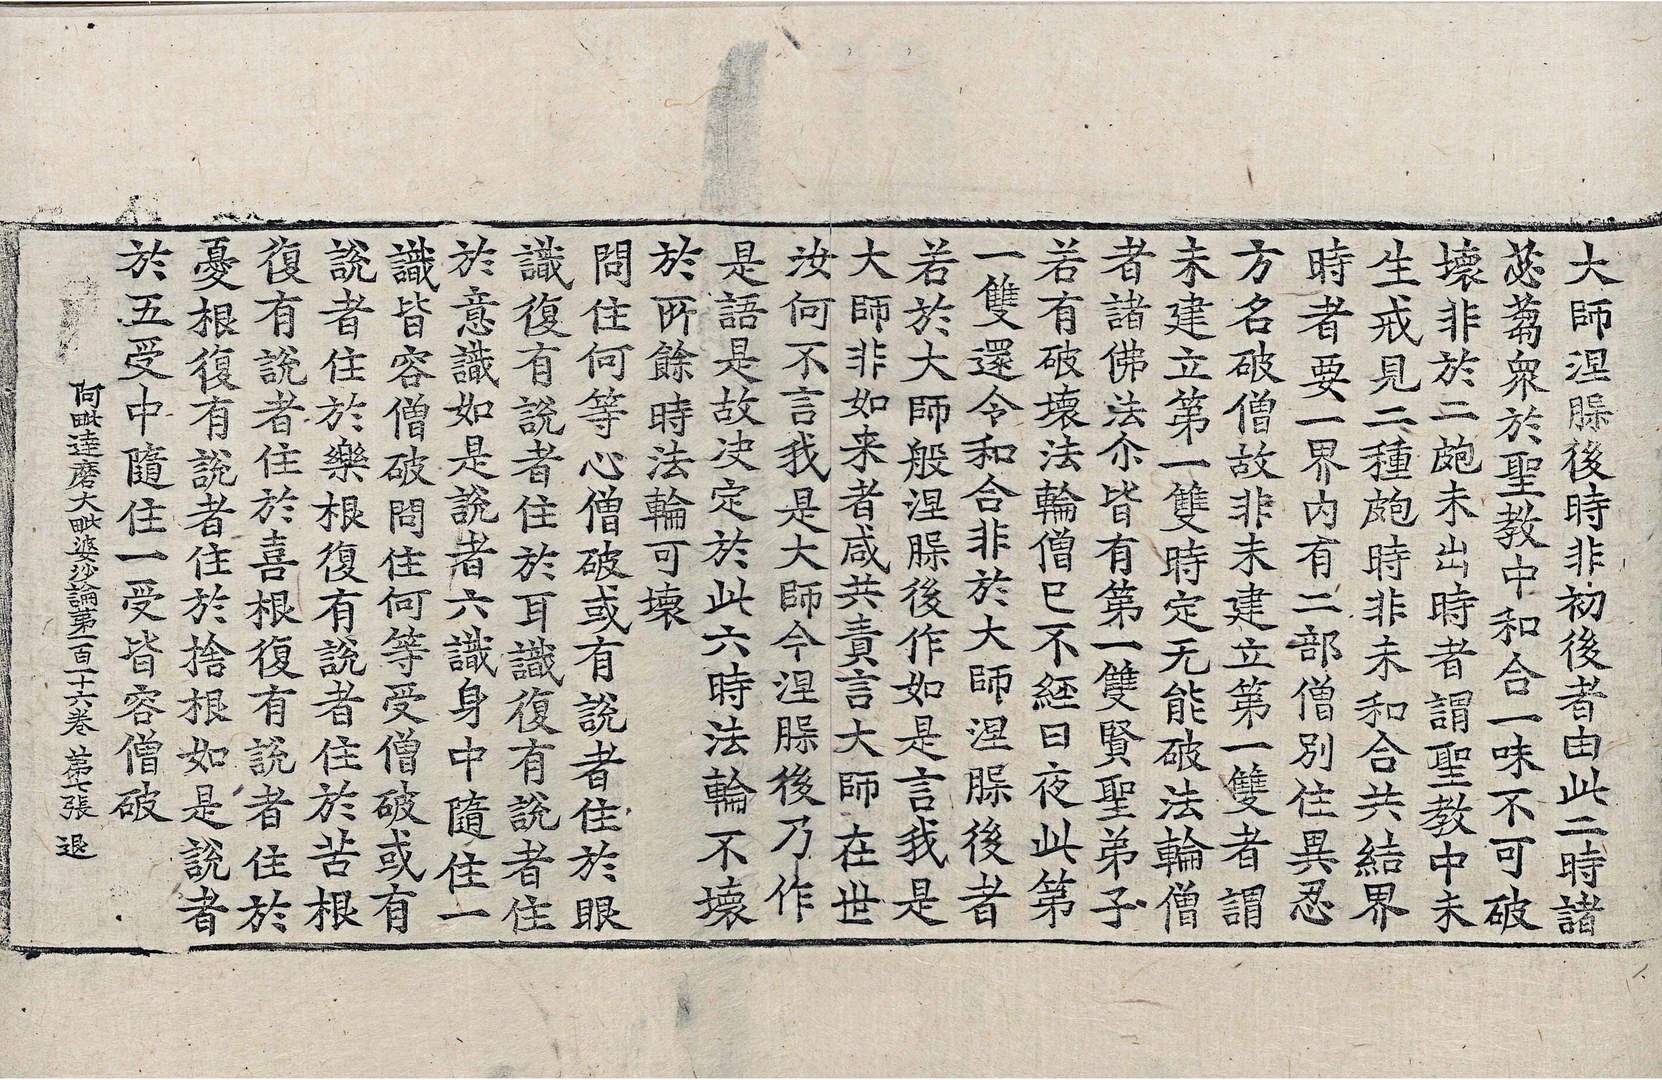 大師涅槃後時非初後者由此二時諸
苾芻衆於聖教中和合一味不可破
壞非於二皰未出時者謂聖教中未
生戒見二種皰時非未和合共結界
時者要一界內有二部僧別住異忍
方名破僧故非未建立第一雙者謂
未建立第一雙時定无能破法輪僧
者諸佛法尒皆有第一雙賢聖弟子
若有破壞法輪僧已不經日夜此第
一雙還令和合非於大師涅槃後者
若於大師般涅槃後作如是言我是
大師非如来者咸共責言大師在世
汝何不言我是大師今涅槃後乃作
是語是故决定於此六時法輪不壞
於所餘時法輪可壞
問住何等心僧破或有說者住於眼
識復有說者住於耳識復有說者住
於意識如是說者六識身中隨住一
識皆容僧破問住何等受僧破或有
說者住於樂根復有說者住於苦根
復有說者住於喜根復有說者住於
憂根復有說者住於捨根如是說者
於五受中隨住一受皆容僧破
阿毗達磨大毗婆沙論第一百一十六卷 第七張 退